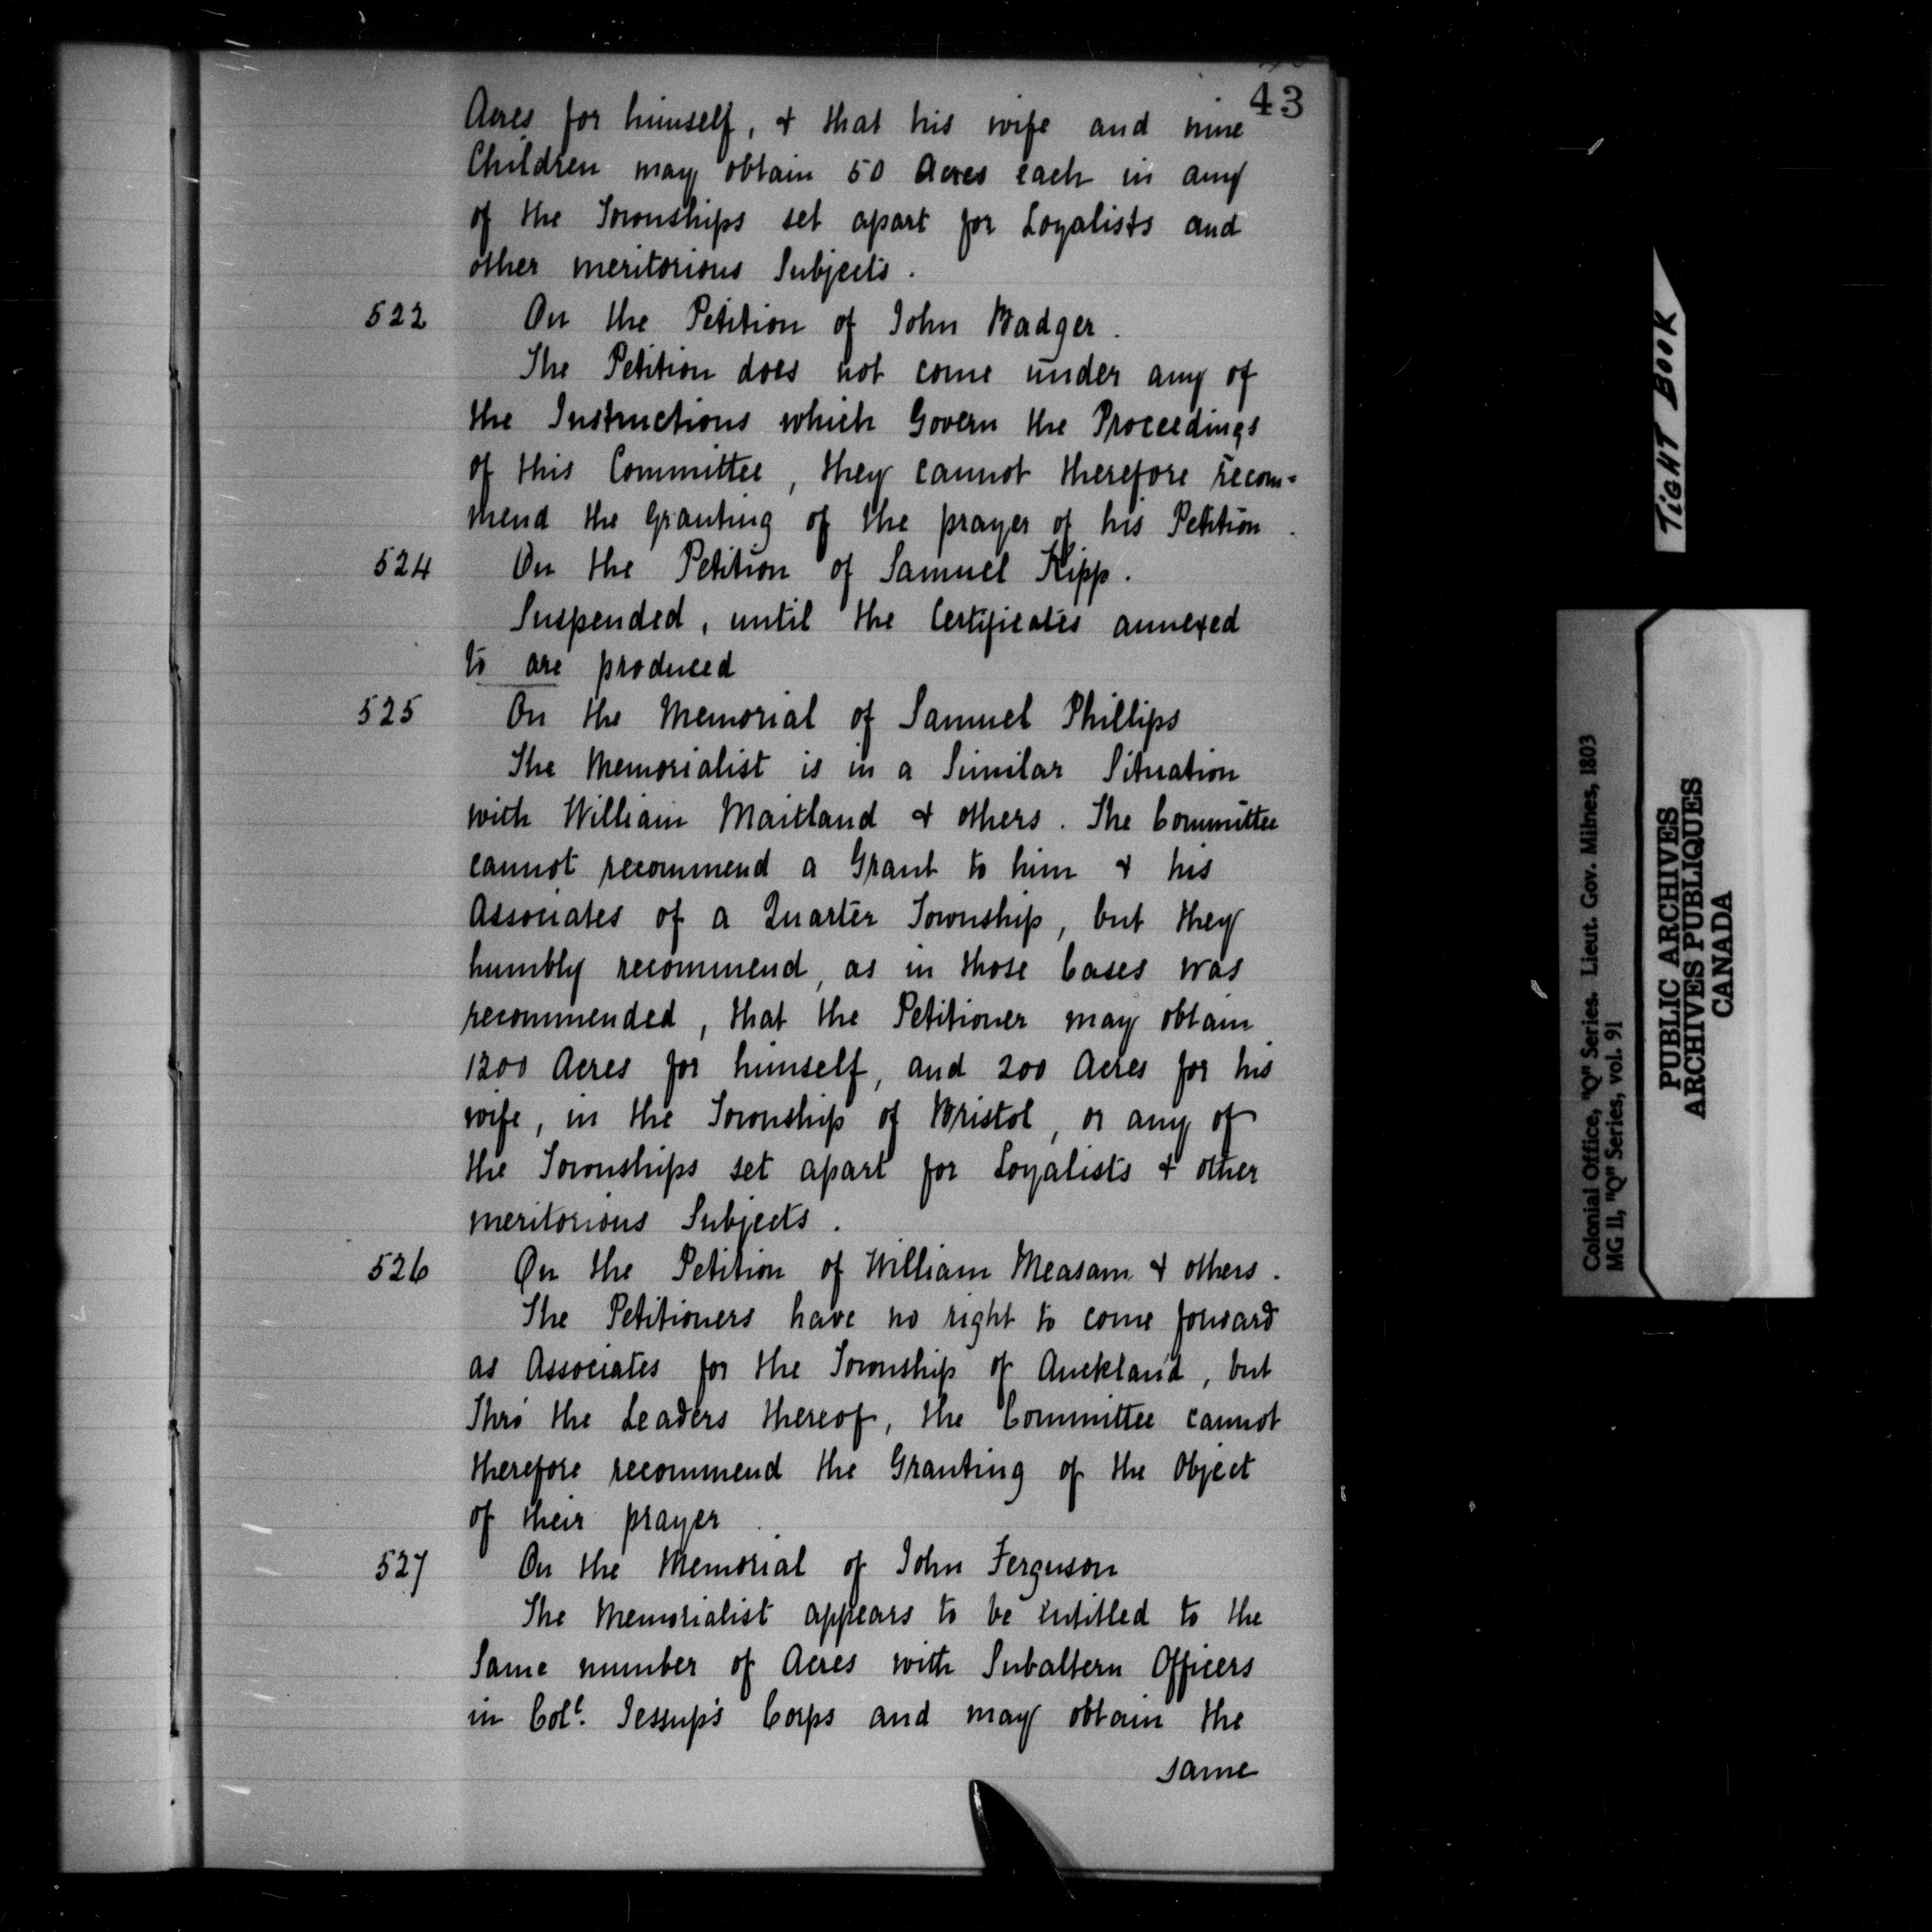 43
Acres for himself, & that his wife and nine
Children may obtain 50 Acres each in any
of the Townships set apart for Loyalists and
other meritorious Subjects.
522 On the Petition of John Badger.
The Petition does not come under any of
the Instructions which Govern the Proceedings
of this Committee, they cannot therefore recom-
mend the granting of the prayer of his Petition.
524 On the Petition of Samuel Kipp.
Suspended, until the Certificates annexed
to are produced
525 On the Memorial of Samuel Phillips
The Memorialist is in a Similar Situation
with William Maitland & others. The Committee
cannot recommend a Grant to him & his
Associates of a Quarter Township, but they
humbly recommend, as in those Cases was
recommended, that the Petitioner may obtain
1200 Acres for himself, and 200 Acres for his
wife, in the Township of Bristol, or any of
the Townships set apart for Loyalists & other
meritorious Subjects.
526 On the Petition of William Measam & others.
The Petitioners have no right to come forward
as Associates for the Township of Auckland, but
Thro' the Leaders thereof, the Committee cannot
therefore recommend the Granting of the Object
of their prayer.
527 On the Memorial of John Ferguson
The Memorialist appears to be entitled to the
Same number of Acres with Subaltern Officers
in Coll. Jessup's Corps and may obtain the
same
TIGHT BOOK
Colonial Office, "Q" Series. Lieut. Gov. Milnes, 1803
MG 11, "Q" Series, vol. 91
PUBLIC ARCHIVES
ARCHIVES PUBLIQUES
CANADA